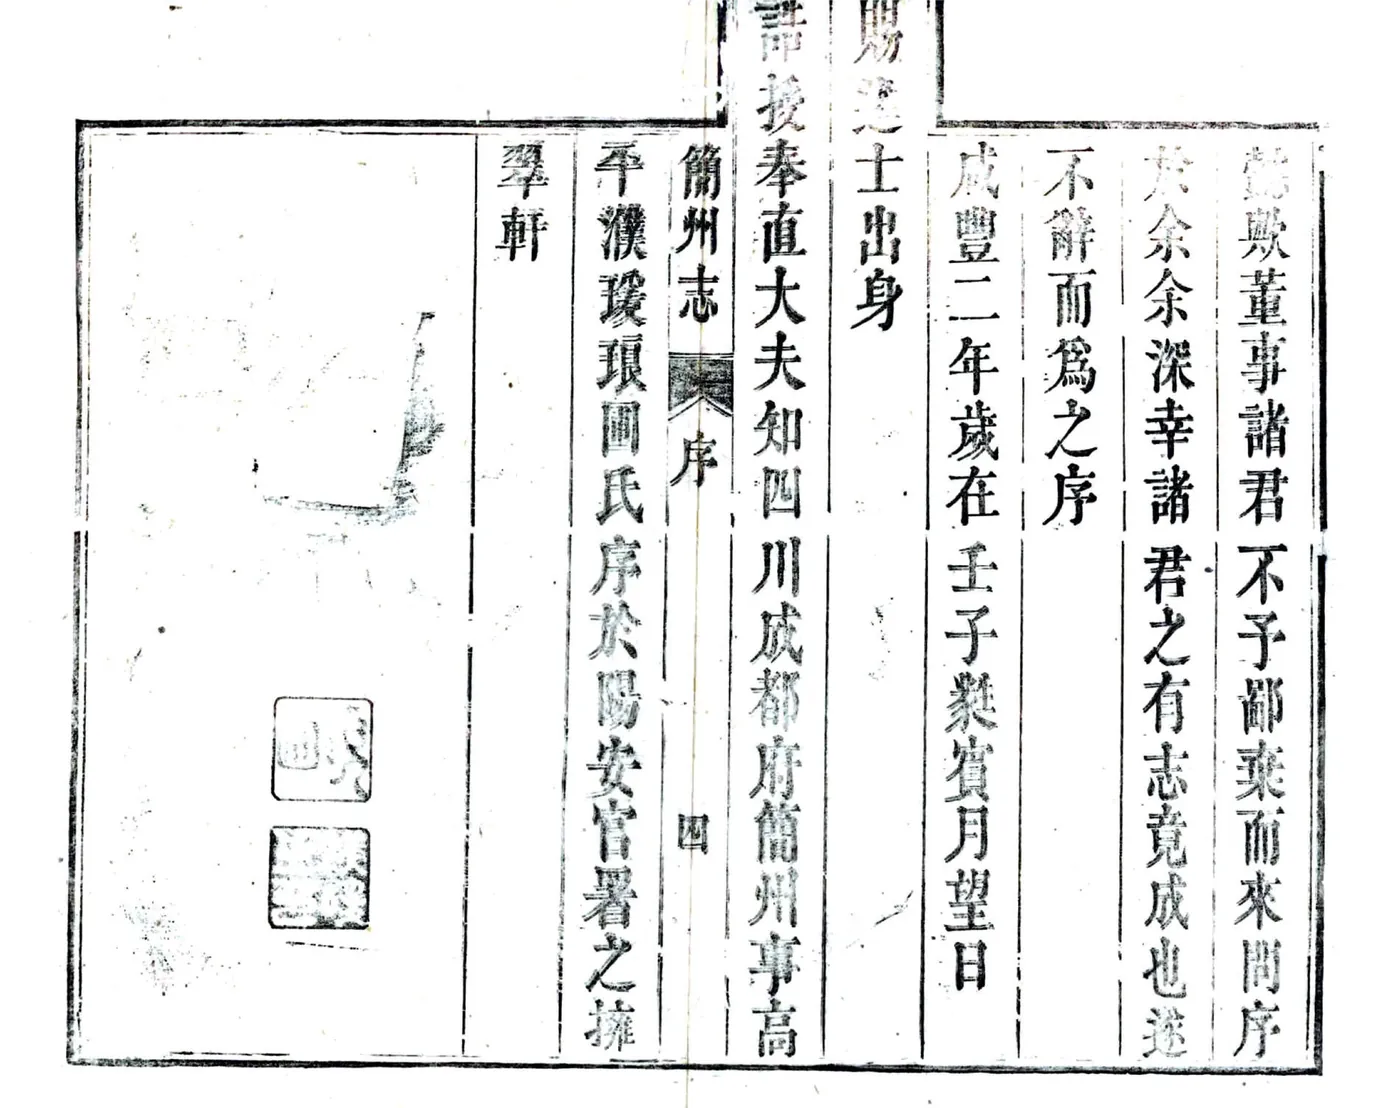 懿歟董事諸君不予鄙棄而來問序
於余余深幸諸君之有志竟成也遂
不辭而爲之序
咸豐二年歲在壬子蕤賓月望日
賜進士出身
誥授奉直大夫知四川成都府簡州事高
簡州志 序 四
平濮瑗琅圃氏序於陽安官署之擁
翠軒